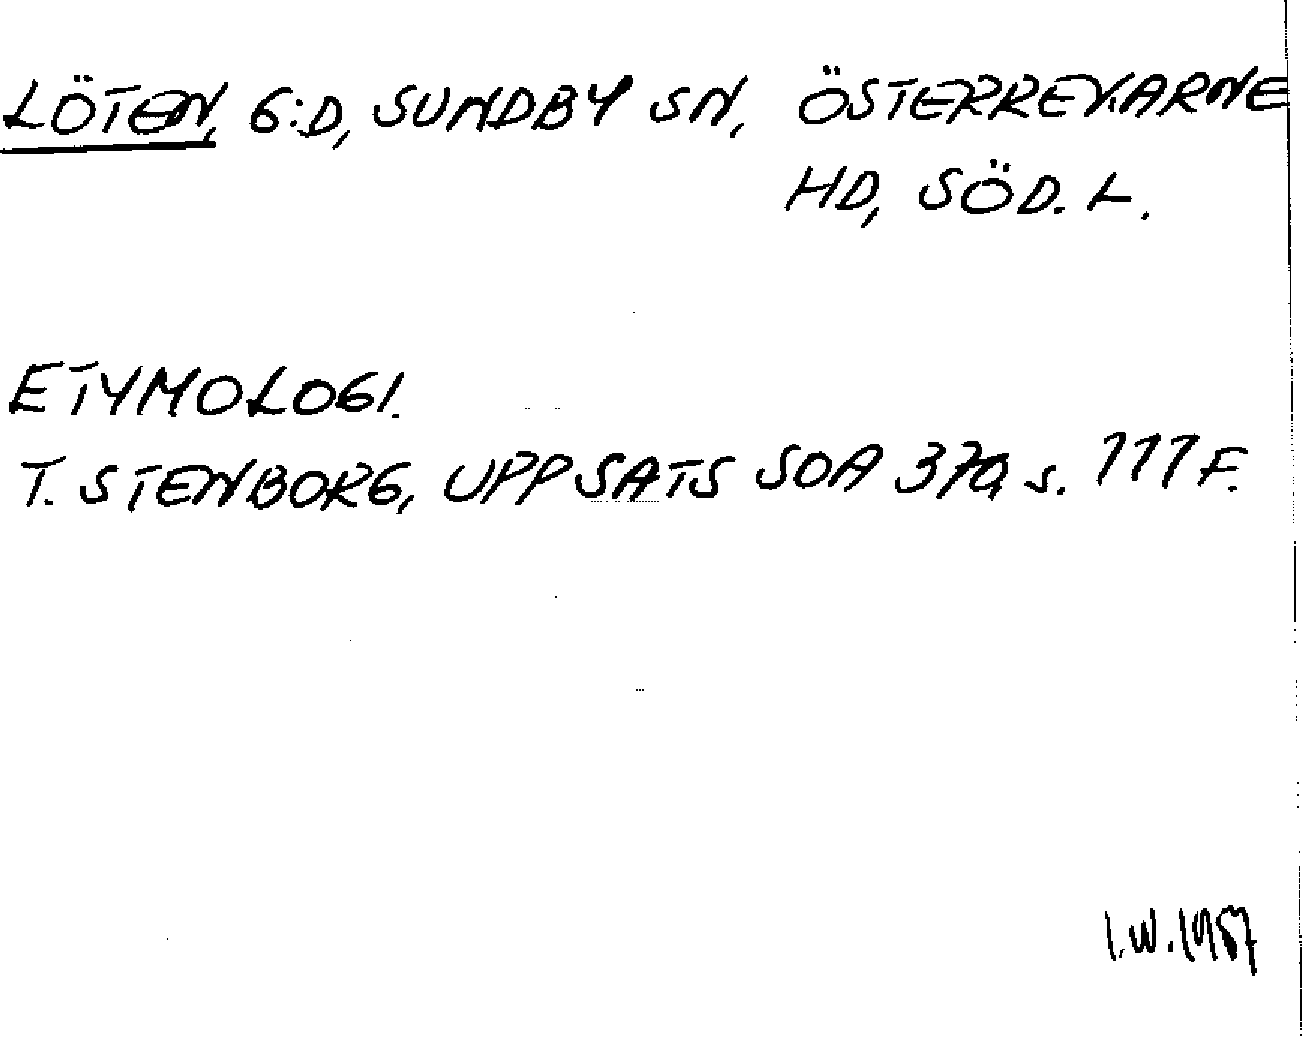 LÖTEN, G:D, SUNDBY SN, ÖSTERREKARNE
HD, SÖD. L.
ETYMOLOGI.
T. STENBORG, UPPSATS SOA 370, s. 111 F.
I.W. 1987